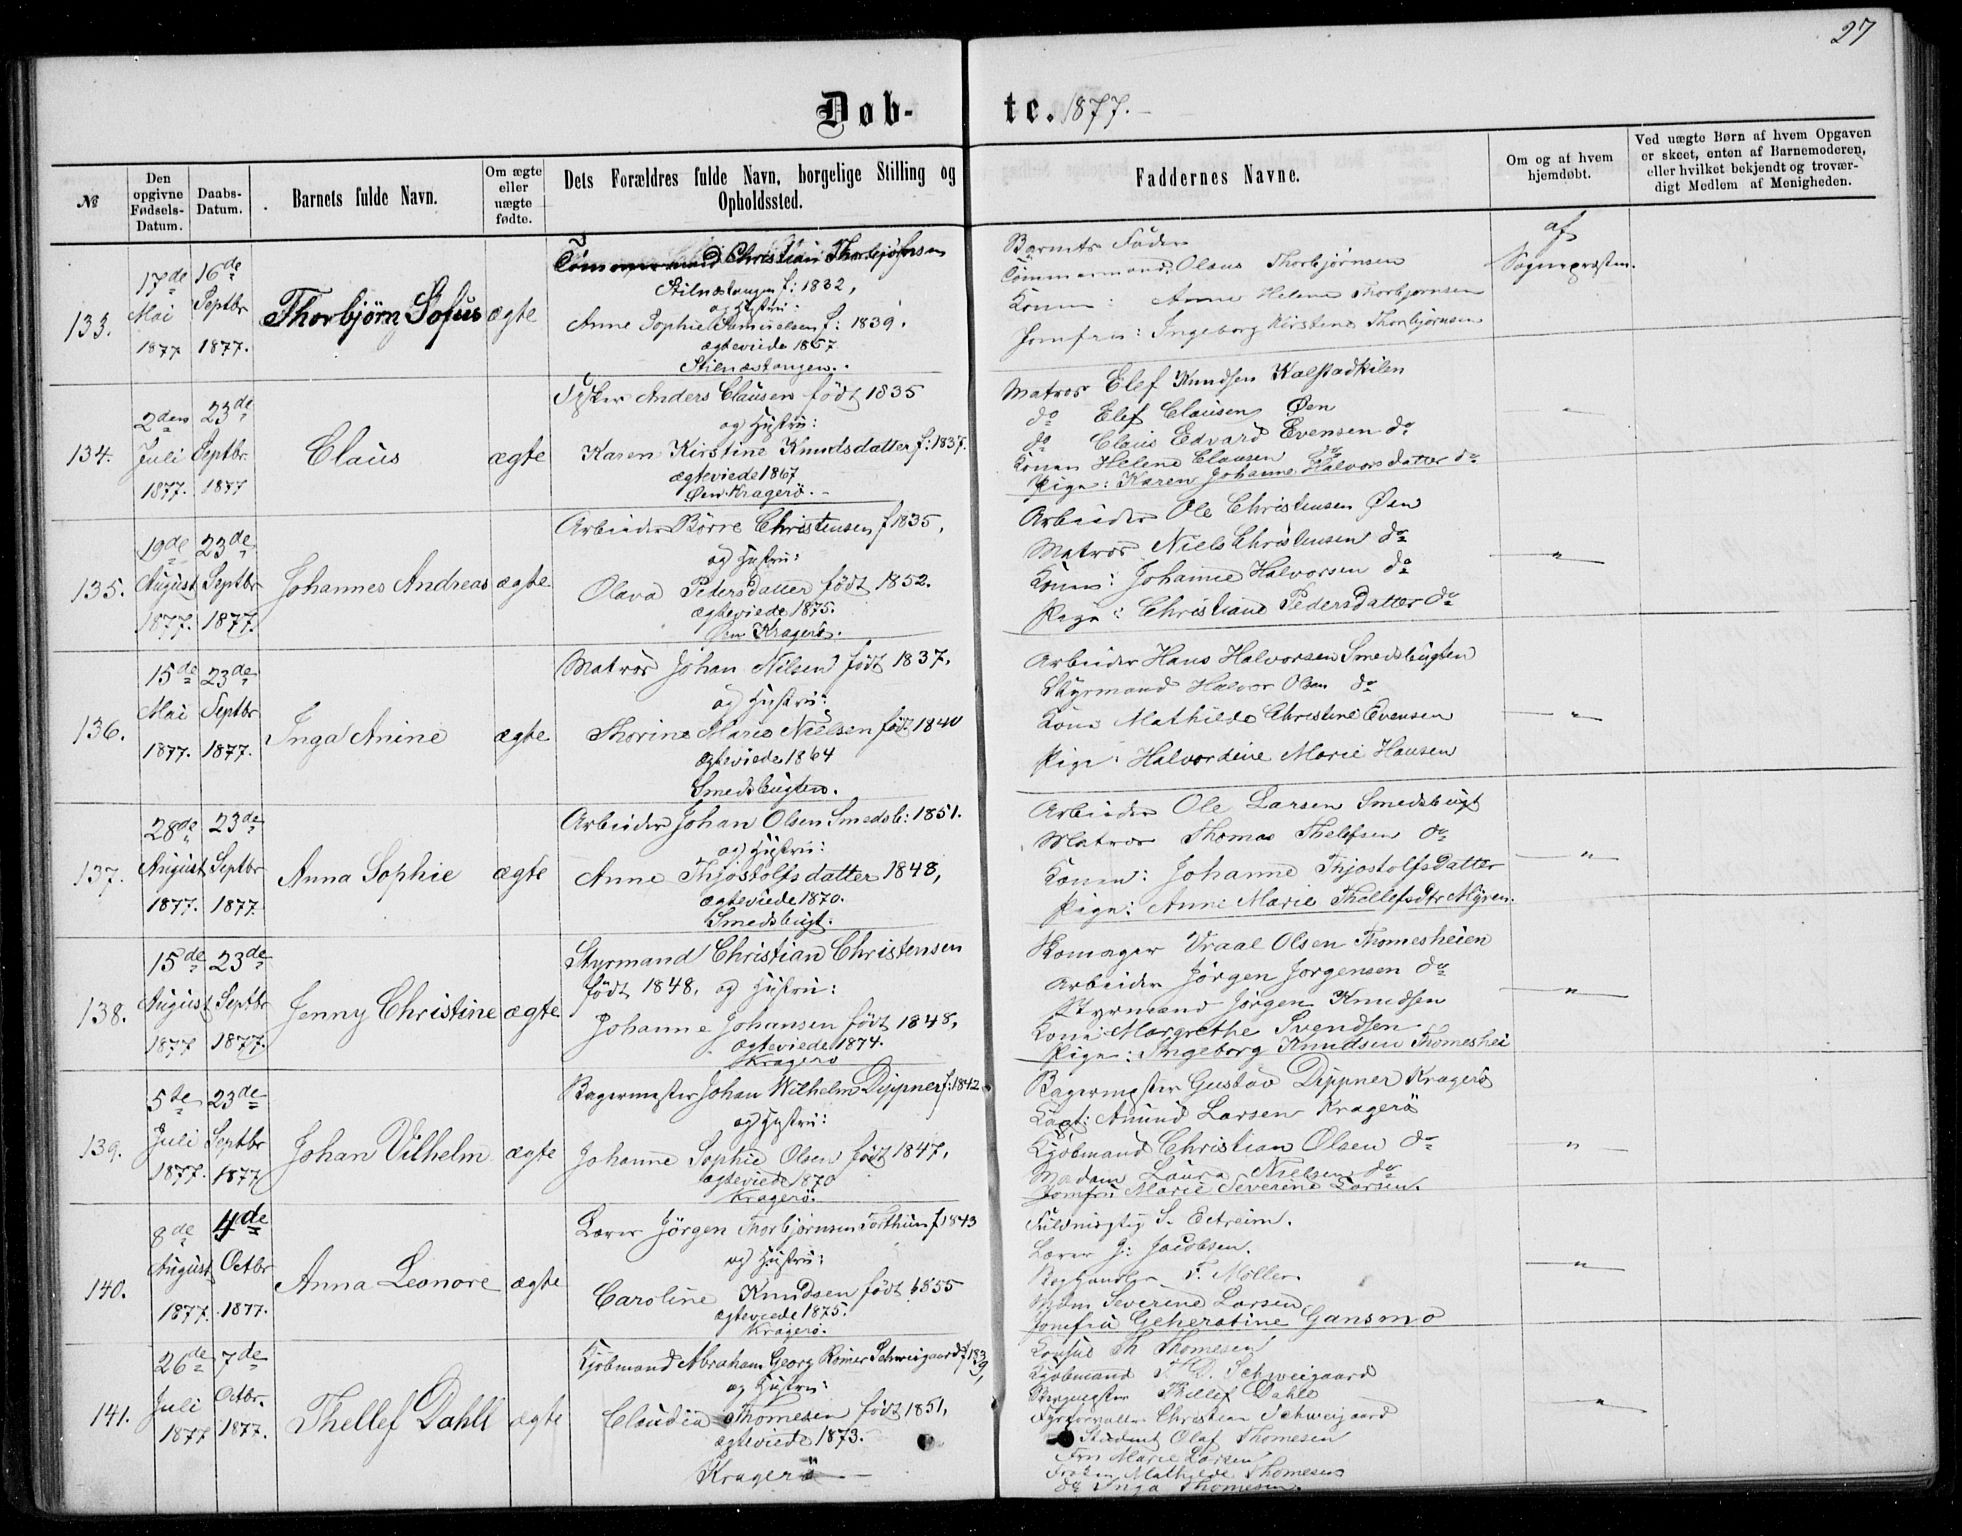 27
Døb-
te. 1877.
№
Den opgivne Fødsels-Datum.
Daabs-Datum.
Barnets fulde Navn.
Om ægte eller uægte fødte.
Dets Forældres fulde Navn, borgelige Stilling og Opholdssted.
Faddernes Navne.
Om og af hvem hjemdøbt.
Ved uægte Børn af hvem Opgaven er skeet, enten af Barnemoderen, eller hvilket bekjendt og troværdigt Medlem af Menigheden.
133.
17de Mai 1877
16de Septbr 1877.
Thorbjørn Sofus
ægte
Tømmermand Christian Thorbjørnsen
Stilnæstangen f: 1832,
og Hustru:
Anne Sophie Samuelsen f: 1839.
ægteviede 1857
Stilnæstangen.
Barnets Fader
Tømmermand: Olaus Thorbjørnsen
Konen: Anne Helene Thorbjørnsen
Jomfru: Ingeborg Kirstine Thorbjørnsen
af
Sognepræsten.
134.
2den Juli 1877.
23de Septbr. 1877
Claus
ægte
Fisker Anders Clausen født 1835
og Hustru:
Karen Kirstine Knudsdatter f: 1837.
ægteviede 1867
Øen Kragerø.
Matros Elef Knudsen Kalstadkilen
do Elef Clausen Øen
do Claus Edvard Evensen do
Konen Helene Clausen do
Pige: Karen Johanne Halvorsdatter do
"
135.
19de August 1877.
23de Septbr 1877.
Johannes Andreas
ægte
Arbeider Börre Christensen f 1835,
og Hustru:
Olava Pedersdatter født 1852.
ægteviede 1875.
Øen Kragerö.
Arbeider Ole Christensen Øen
Matros Niels Christensen do
Konen: Johanne Halvorsen do
Pige: Christiane Pedersdatter do
"
136.
15de Mai 1877.
23de Septbr 1877.
Inga Anine
ægte
Matros Johan Nilsen født 1837.
og Hustru:
Thorine Marie Nielsen fød. 1840
Ægteviede 1864
Smedsbugten.
Arbeider Hans Halvorsen Smedsbugten
Styrmand Halvor Olsen do
Kone Mathilde Christine Evensen
Pige: Halvordine Marie Hansen
"
137.
28de August 1877.
23de Septbr 1877.
Anna Sophie
ægte
Arbeider Johan Olsen Smedsb: 1851.
og Hustru:
Anne Thjostolfsdatter 1848,
ægteviede 1870.
Smedsbugt.
Arbeider Ole Larsen Smedsbugt
Matros Thomas Thelefsen do
Konen: Johanne Thjostolfsdatter
Pige: Anne Marie Thellefsdtr Myren.
"
138.
15de August 1877
23de Septbr 1877.
Jenny Christine
ægte
Styrmand Christian Christensen
født 1848. og Hustru:
Johanne Johansen født 1848,
Ægteviede 1874.
Kragerø
Skomager Vraal Olsen Thomesheien
Arbeider Jørgen Jorgensen do
Styrmand Jørgen Knudsen
Kone Margrethe Svendsen
Pige: Ingeborg Knudsen Thomeshei
"
139.
5te Juli 1877.
23de Septbr 1877
Johan Vilhelm
ægte
Bagermester Johan Wilhelm Dippner f: 1842
og Hustru:
Johanne Sophie Olsen født 1847,
ægteviede 1870
Kragerö.
Bagermester Gustav Dippner Kragerö
Kapt: Amund Larsen Kragerö
Kjöbmand Christian Olsen do
Madam Laura Nielsen do
Jomfru Marie Severine Larsen.
"
140.
8de August 1877.
4de Octbr 1877.
Anna Leonore
ægte
Lærer Jörgen Thorbjørnsen Torthun f 1843
og Hustru:
Caroline Knudsen født 1855
ægteviede 1875.
Kragerø.
Fuldmægtig S. Eitreim.
Lærer J: Jacobsen.
Boghandler F. Møller
Mdm Severine Larsen
Jomfru Geheratine Gansmo
"
141.
26de Juli 1877
7de Octbr. 1877.
Thellef Dahll
ægte
Kjöbmand Abraham Georg Römer Schweigaard f 1839,
og Hustru:
Claudia Thomesen født 1851,
ægteviede 1873.
Kragerö
Konsul Th Thomesen
Kjöbmand P. D. Schweigaard
Bergmester Thellef Dahll
Fyrforvalter Christian Schweigaard
Student Olaf Thomesen
Fru Marie Larsen
Frøken Mathilde Thomesen
do Inga Thomesen.
"